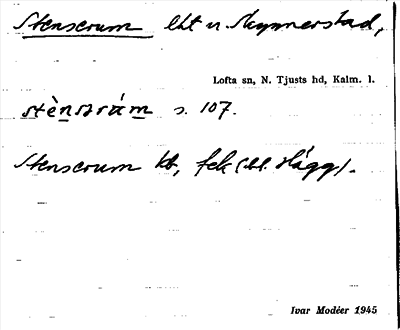 Stenserum lht u Skymnerstad,
Lofta sn, N. Tjusts hd, Kalm. l.
stènsrám s. 107.
Stenserum kb, fek (bl. Hägg).
Ivar Modéer 1945